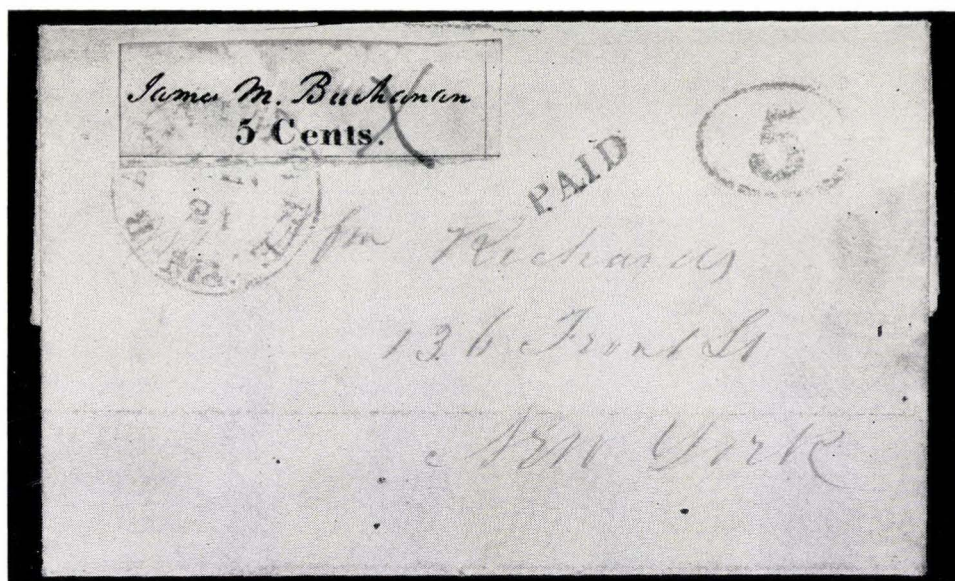 James M. Buchanan
5 Cents.
PAID
5
Richards
136 Front St
New York